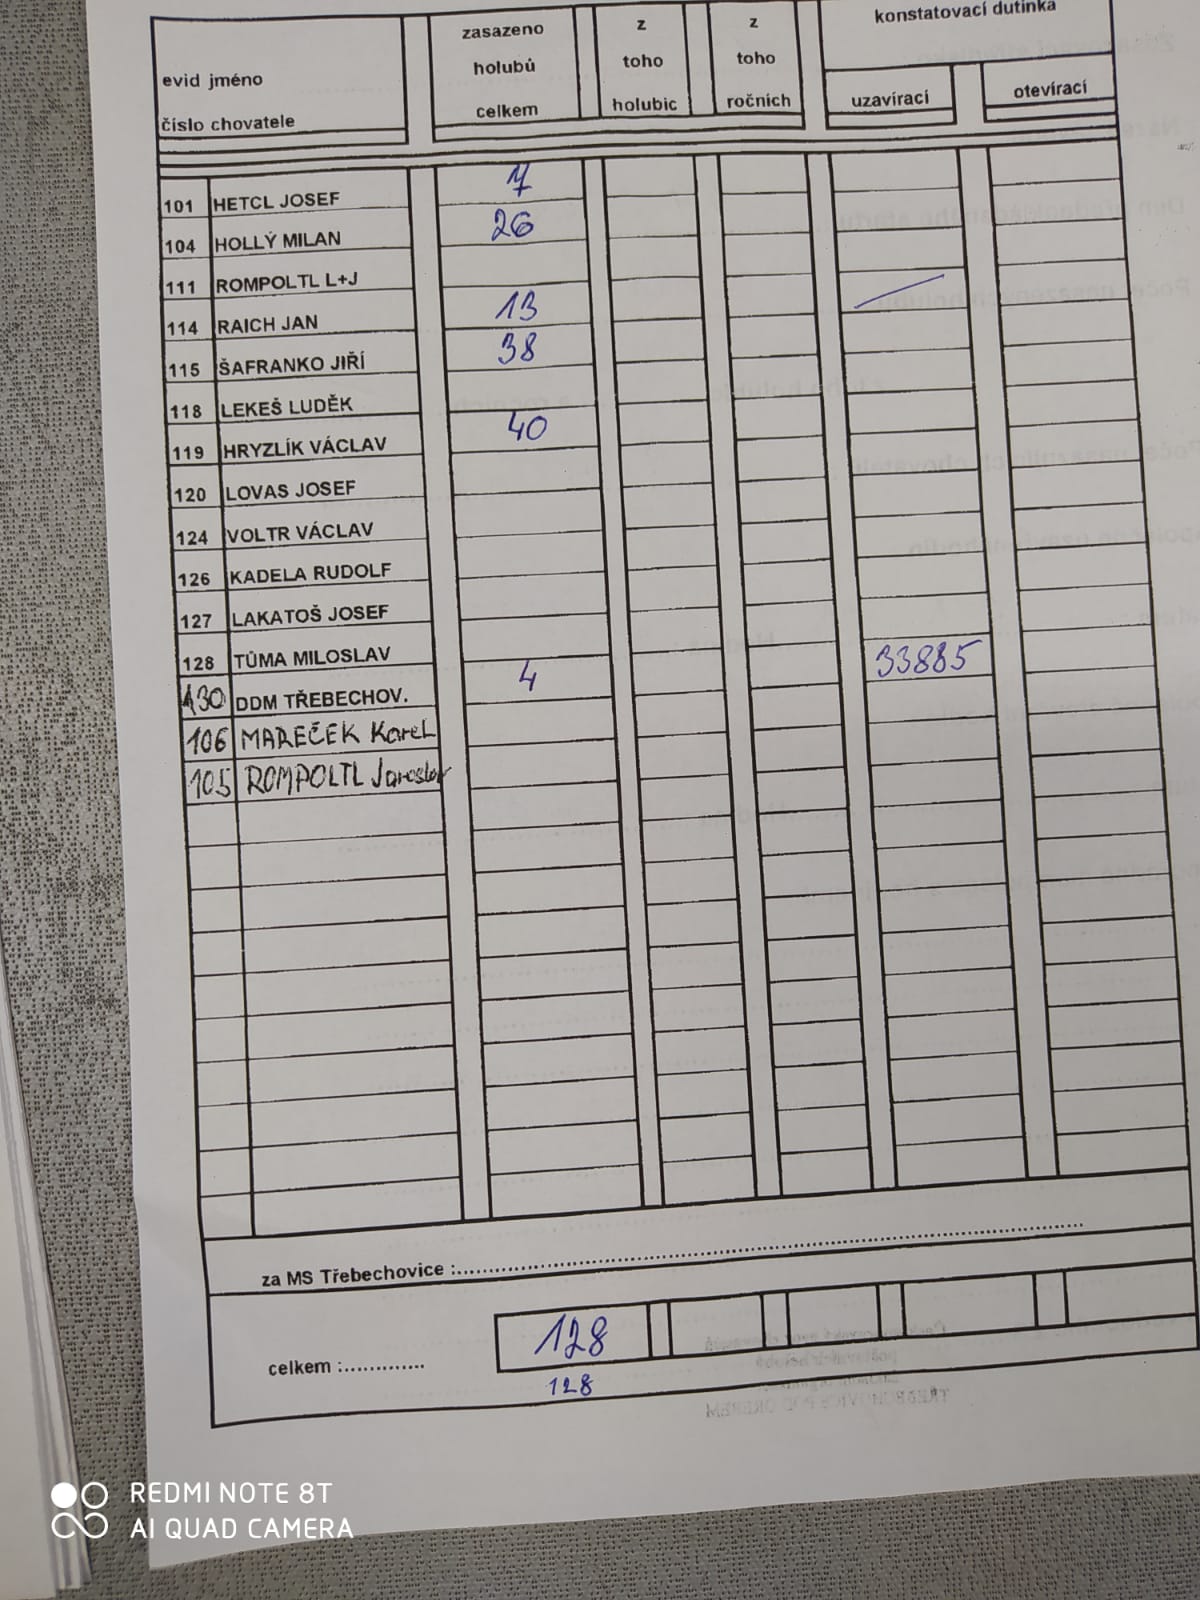 evid jméno
číslo chovatele
zasazeno
holubů
celkem
z
toho
holubic
z
toho
ročních
konstatovací dutinka
uzavírací
otevírací
101 HETCL JOSEF 7
104 HOLLÝ MILAN 26
111 ROMPOLTL L+J
114 RAICH JAN 13
115 ŠAFRANKO JIŘÍ 38
118 LEKEŠ LUDĚK
119 HRYZLÍK VÁCLAV 40
120 LOVAS JOSEF
124 VOLTR VÁCLAV
126 KADELA RUDOLF
127 LAKATOŠ JOSEF
128 TŮMA MILOSLAV
130 DDM TŘEBECHOV. 4 33885
106 MAREČEK Karel
105 ROMPOLTL Jaroslav
za MS Třebechovice :
celkem :............. 128
128
REDMI NOTE 8T
AI QUAD CAMERA